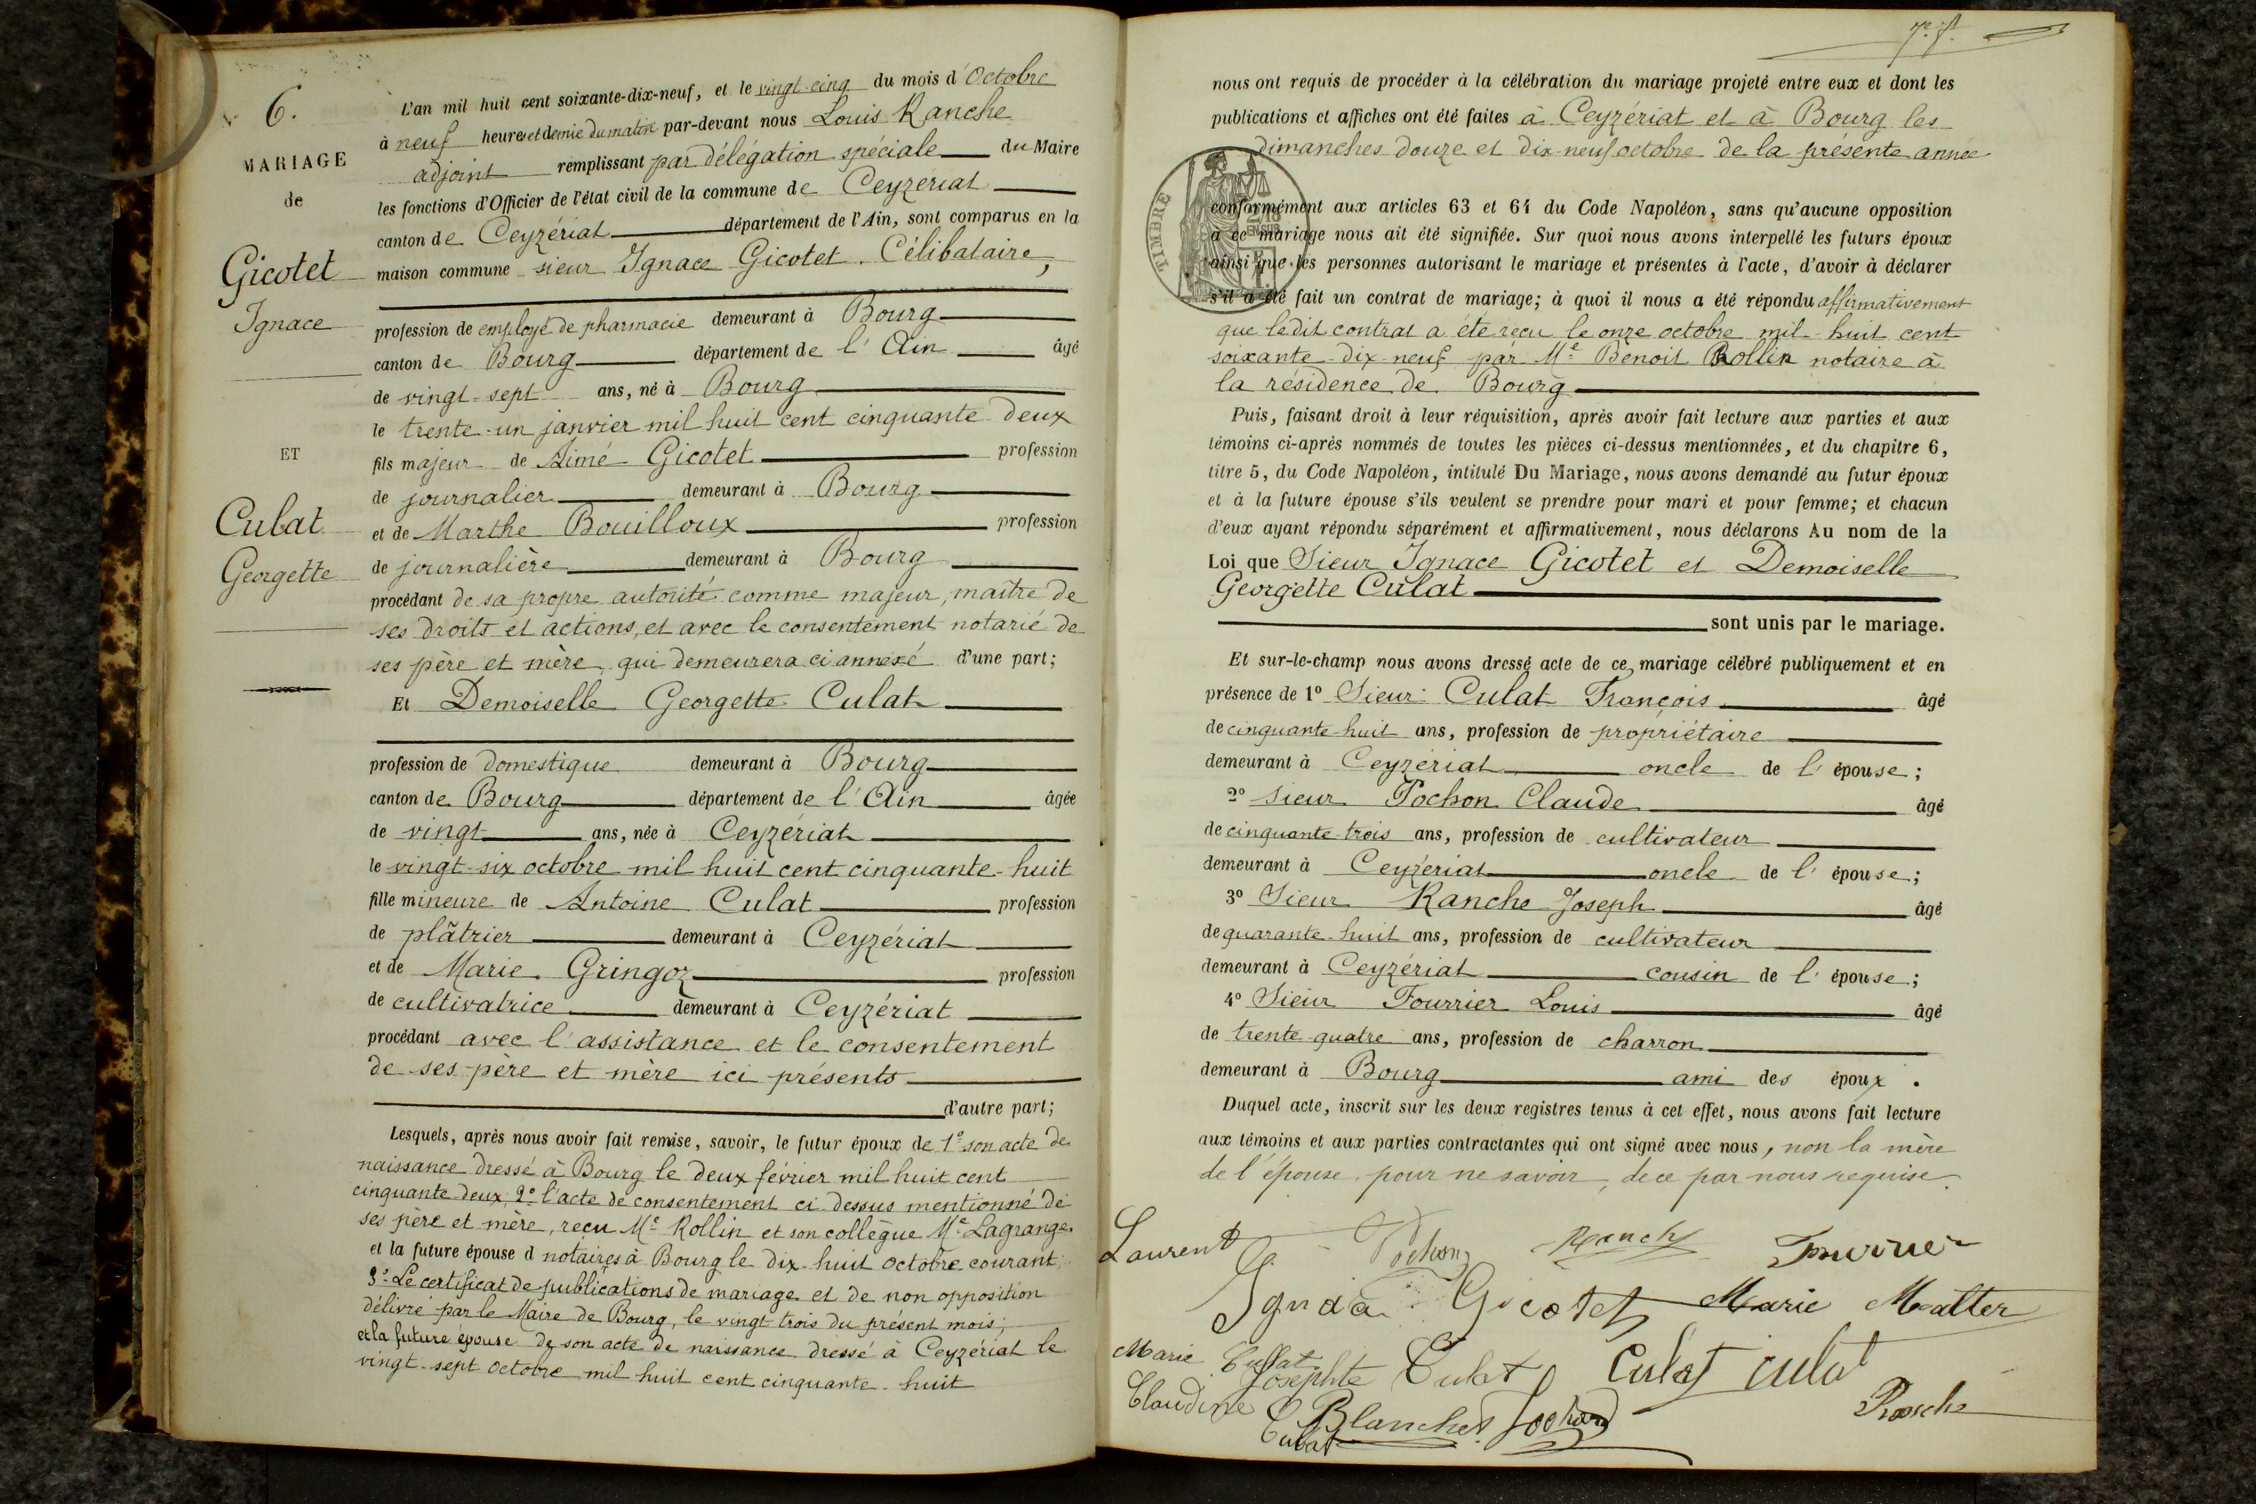 6.
MARIAGE
de
Gicotet
Ignace
ET
Culat
Georgette
L'an mil huit cent soixante-dix-neuf, et le vingt-cinq du mois d'Octobre
à neuf heures et demie du matin par-devant nous Louis Ranche
adjoint remplissant par délégation spéciale du Maire
les fonctions d'Officier de l'état civil de la commune de Ceyzériat
canton de Ceyzériat département de l'Ain, sont comparus en la
maison commune sieur Ignace Gicotet. Célibataire,
profession de employé de pharmacie demeurant à Bourg
canton de Bourg département de l'Ain âgé
de vingt-sept ans, né à Bourg
le trente-un janvier mil huit cent cinquante-deux
fils majeur de Aimé Gicotet profession
de journalier demeurant à Bourg
et de Marthe Bouilloux profession
de journalière demeurant à Bourg
procédant de sa propre autorité comme majeur, maître de
ses droits et actions, et avec le consentement notarié de
ses père et mère, qui demeurera ci annexé d'une part;
Et Demoiselle Georgette Culat
profession de domestique demeurant à Bourg
canton de Bourg département de l'Ain âgée
de vingt ans, née à Ceyzériat
le vingt-six octobre mil huit cent cinquante-huit
fille mineure de Antoine Culat profession
de plâtrier demeurant à Ceyzériat
et de Marie Gringoz profession
de cultivatrice demeurant à Ceyzériat
procédant avec l'assistance et le consentement
de ses père et mère ici présents
d'autre part;
Lesquels, après nous avoir fait remise, savoir, le futur époux de 1° son acte de
naissance dressé à Bourg le deux février mil huit cent
cinquante-deux, 2° l'acte de consentement ci dessus mentionné de
ses père et mère, reçu Me Rollin et son collègue Me Lagrange
et la future épouse d notaires à Bourg le dix-huit octobre courant;
3° Le certificat de publications de mariage et de non opposition
délivré par le Maire de Bourg, le vingt trois du présent mois;
et la future épouse de son acte de naissance dressé à Ceyzériat le
vingt-sept octobre mil huit cent cinquante-huit
nous ont requis de procéder à la célébration du mariage projeté entre eux et dont les
publications et affiches ont été faites à Ceyzériat et à Bourg les
dimanches douze et dix-neuf octobre de la présente année
TIMBRE
conformément aux articles 63 et 64 du Code Napoléon, sans qu'aucune opposition
à ce mariage nous ait été signifiée. Sur quoi nous avons interpellé les futurs époux
ainsi que les personnes autorisant le mariage et présentes à l'acte, d'avoir à déclarer
s'il a été fait un contrat de mariage; à quoi il nous a été répondu affirmativement
que ledit contrat a été reçu le onze octobre mil huit cent
soixante-dix-neuf par Me Benoit Rollin notaire à
la résidence de Bourg
Puis, faisant droit à leur réquisition, après avoir fait lecture aux parties et aux
témoins ci-après nommés de toutes les pièces ci-dessus mentionnées, et du chapitre 6,
titre 5, du Code Napoléon, intitulé Du Mariage, nous avons demandé au futur époux
et à la future épouse s'ils veulent se prendre pour mari et pour femme; et chacun
d'eux ayant répondu séparément et affirmativement, nous déclarons Au nom de la
Loi que Sieur Ignace Gicotet et Demoiselle
Georgette Culat
sont unis par le mariage.
Et sur-le-champ nous avons dressé acte de ce mariage célébré publiquement et en
présence de 1° Sieur Culat François âgé
de cinquante-huit ans, profession de propriétaire
demeurant à Ceyzériat oncle de l'épouse;
2° Sieur Pochon Claude âgé
de cinquante-trois ans, profession de cultivateur
demeurant à Ceyzériat oncle de l'épouse;
3° Sieur Ranche Joseph âgé
de quarante-huit ans, profession de cultivateur
demeurant à Ceyzériat cousin de l'épouse;
4° Sieur Fourrier Louis âgé
de trente-quatre ans, profession de charron
demeurant à Bourg ami des époux.
Duquel acte, inscrit sur les deux registres tenus à cet effet, nous avons fait lecture
aux témoins et aux parties contractantes qui ont signé avec nous, non la mère
de l'épouse pour ne savoir, de ce par nous requise.
Laurent Pochon Ranch Fourrier
Gicotet Marie Malter
Marie Culat Josephte Culat Culat Culat
Claudine Culat Blanchet Pochon Ranche